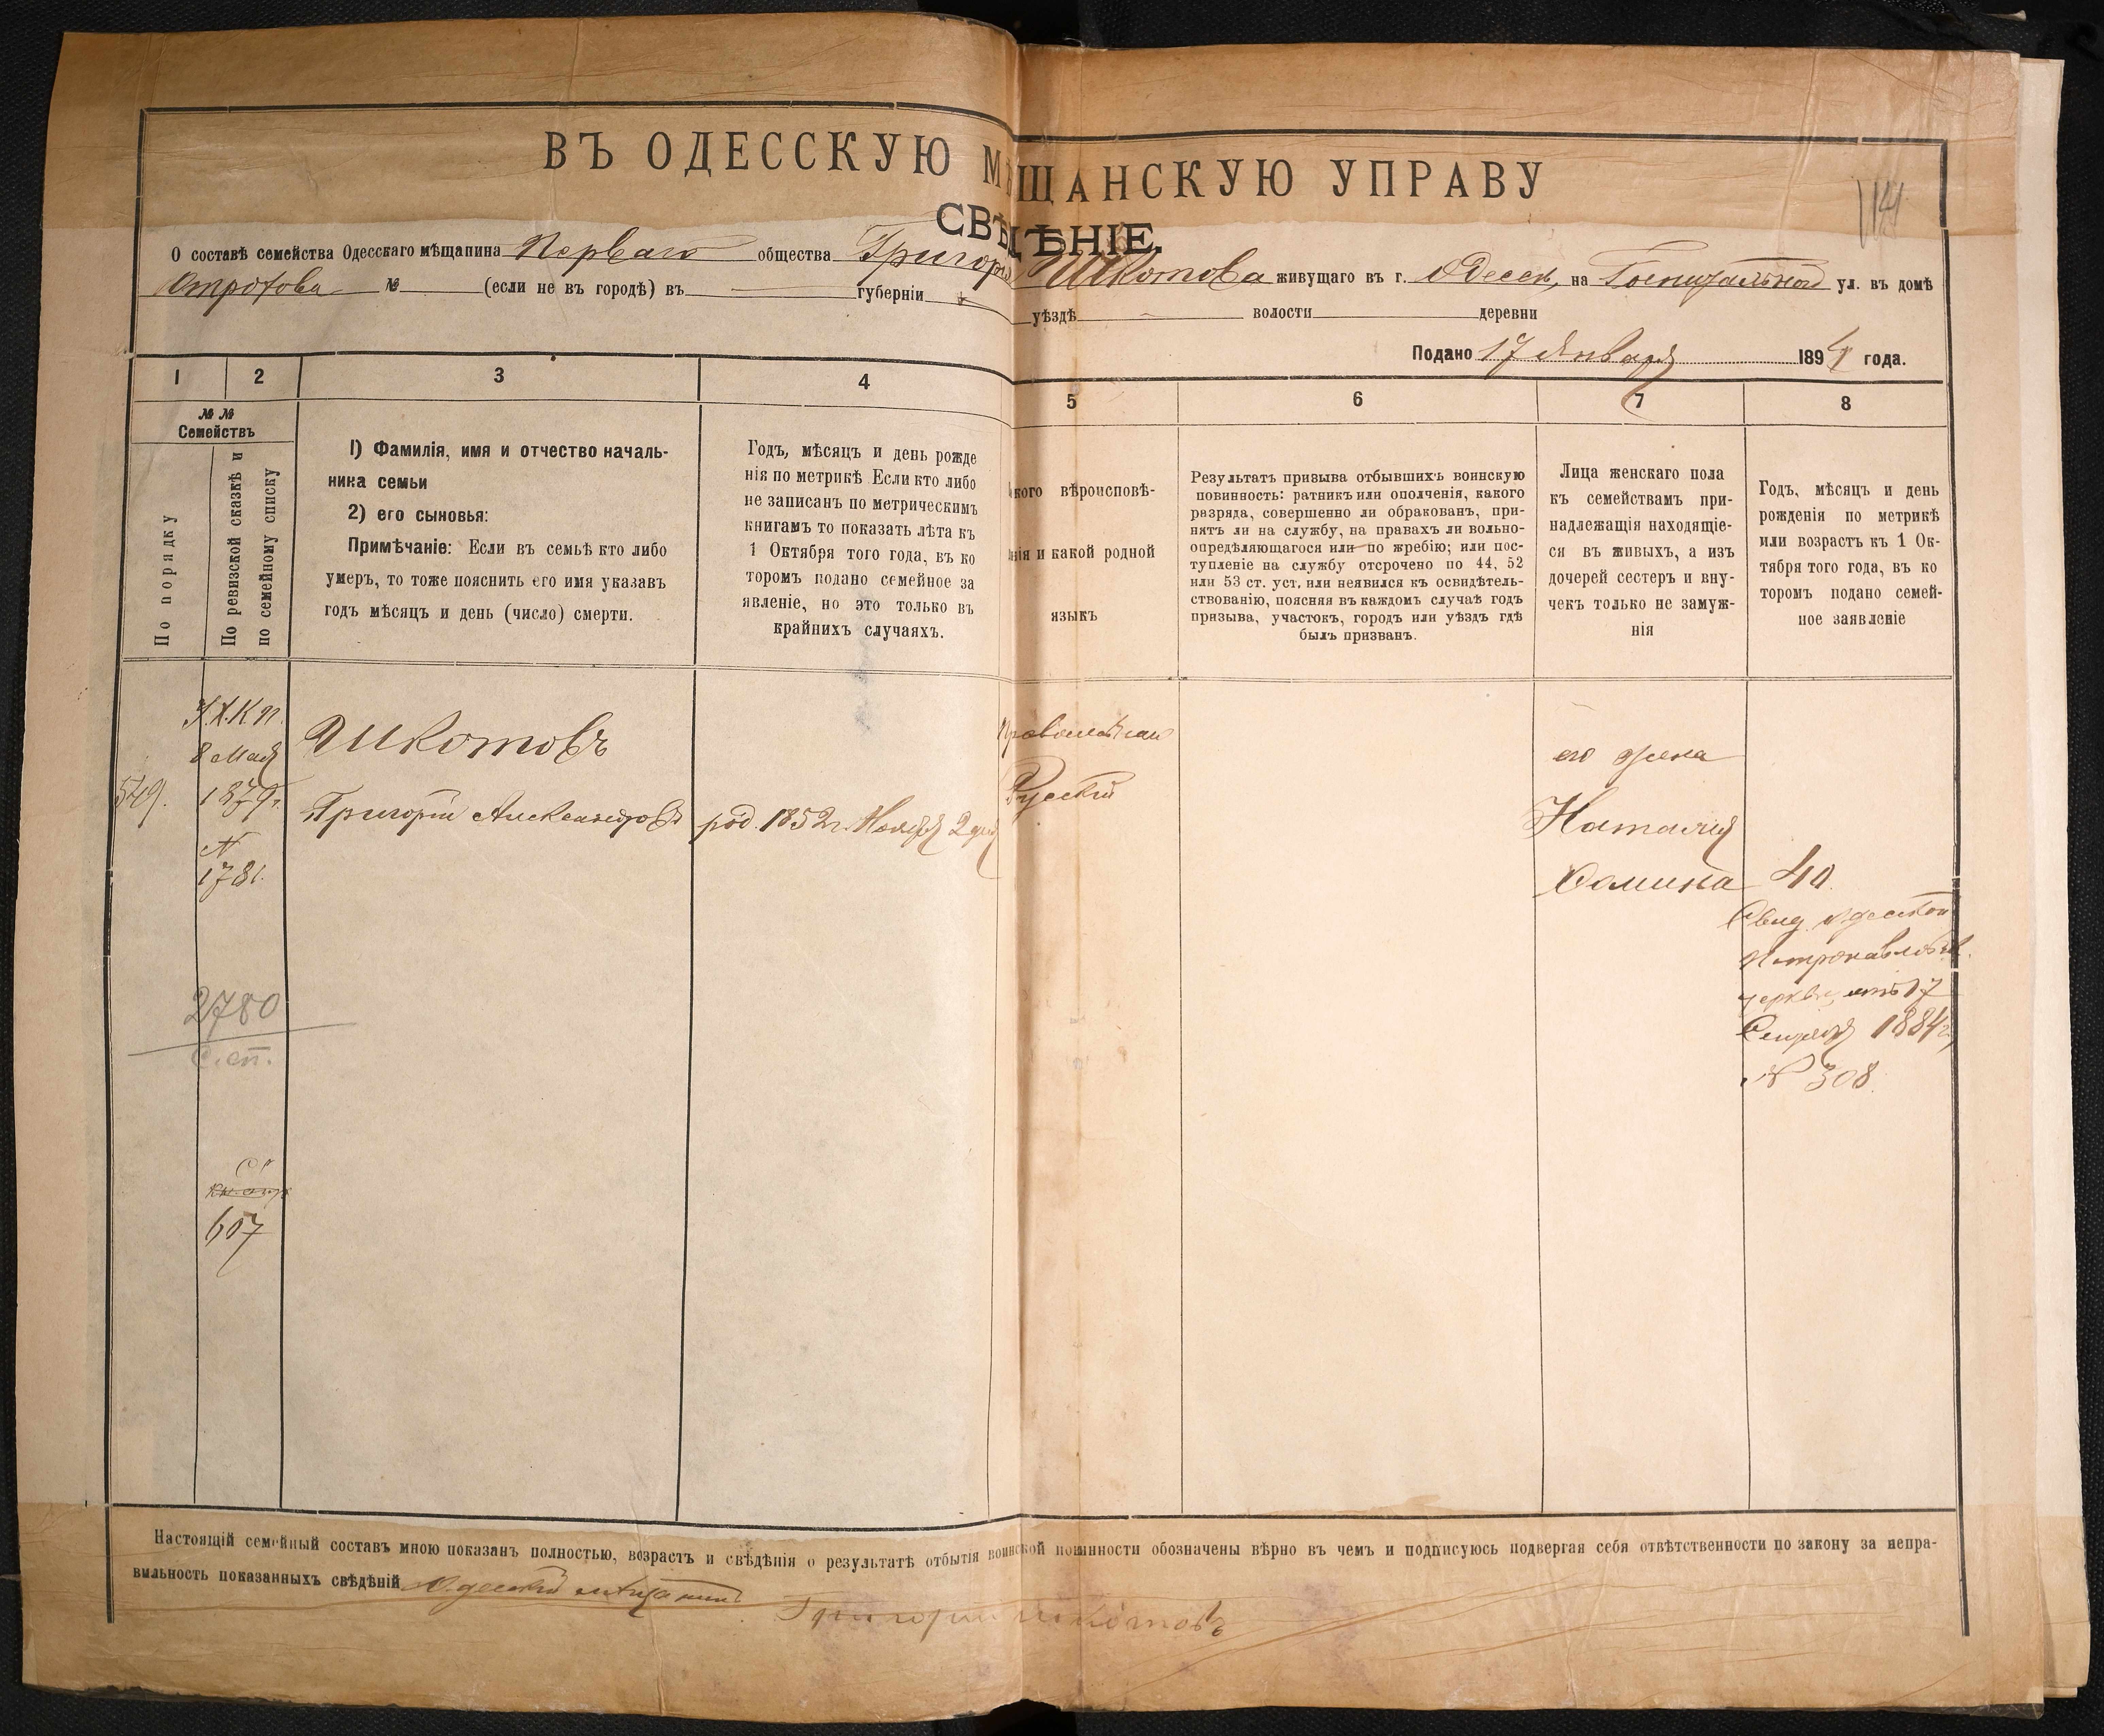 ВЪ ОДЕССКУЮ МѢЩАНСКУЮ УПРАВУ
СВѢДѢНІЕ.
О составѣ семейства Одесскаго мѣщанина Перваго общества Григорія Шкотова живущаго въ г. Одессѣ, на Госпитальной ул. въ домѣ
№ (если не въ городѣ) въ губерніи уѣздѣ волости деревни
Подано 17 Января 1894 года.
1 2 3 4 5 6 7 8
№ №
Семействъ
По порядку
По ревизской сказкѣ и
по семейному списку
1) Фамилія, имя и отчество началь-
ника семьи
2) его сыновья:
Примѣчаніе: Если въ семьѣ кто либо
умеръ, то тоже пояснить его имя указавъ
годъ мѣсяцъ и день (число) смерти.
Годъ, мѣсяцъ и день рожде
нія по метрикѣ Если кто либо
не записанъ по метрическимъ
книгамъ то показать лѣта къ
1 Октября того года, въ ко
торомъ подано семейное за
явленіе, но это только въ
крайнихъ случаяхъ.
кого вѣроисповѣ-
нія и какой родной
языкъ
Результатъ призыва отбывшихъ воинскую
повинность: ратникъ или ополченія, какого
разряда, совершенно ли обракованъ, при-
нятъ ли на службу, на правахъ ли вольно-
опредѣляющагося или по жребію; или пос-
тупленіе на службу отсрочено по 44, 52
или 53 ст. уст. или неявился къ освидѣтель-
ствованію, поясняя въ каждомъ случаѣ годъ
призыва, участокъ, городъ или уѣздъ гдѣ
былъ призванъ.
Лица женскаго пола
къ семействамъ при-
надлежащія находящіе-
ся въ живыхъ, а изъ
дочерей сестеръ и вну-
чекъ только не замуж-
нія
Годъ, мѣсяцъ и день
рожденія по метрикѣ
или возрастъ къ 1 Ок-
тября того года, въ ко
торомъ подано семей-
ное заявленіе
549.
8 Мая
1879г.
№
1781.
2780
с. сп.
607
Шкотовъ
Григорій Александровъ
род. 1852г. Ноября 2 дня
Православнаго
Русскій
его жена
Наталія
Фомина
40
Свид. Одесской
Петропавловск.
церкви, отъ 17
1884г.
№ 308.
Настоящій семейный составъ мною показанъ полностью, возрастъ и свѣдѣнія о результатѣ отбытія воинской повинности обозначены вѣрно въ чемъ и подписуюсь подвергая себя отвѣтственности по закону за непра-
вильность показанныхъ свѣдѣній Одесскій мѣщанинъ
Григорій Шкотовъ